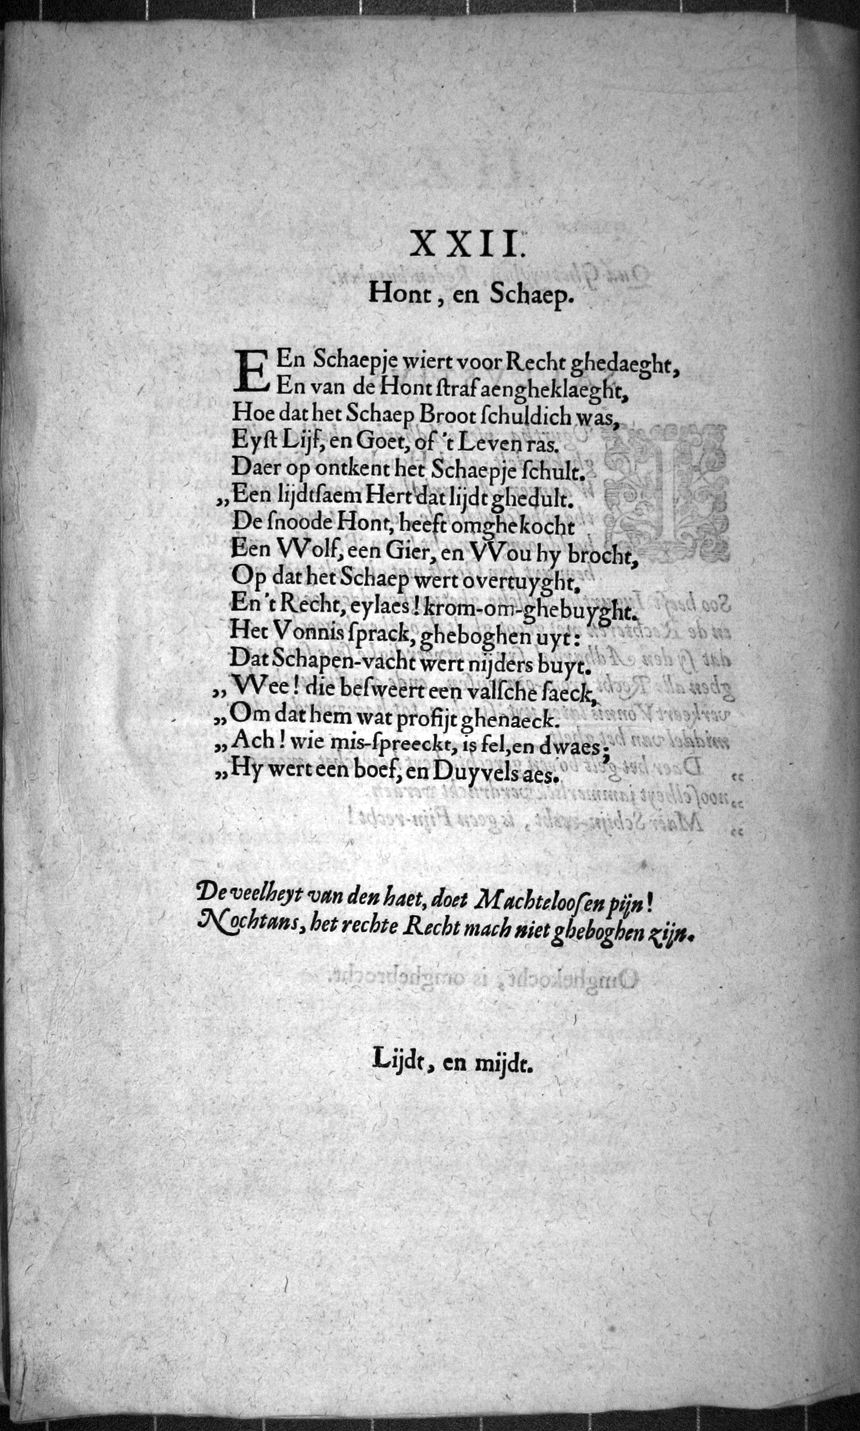 XXII.
Hont, en Schaep.
EEn Schaepje wiert voor Recht ghedaeght,
En van de Hont ſtraf aengheklaeght,
Hoe dat het Schaep Broot ſchuldich was,
Eyſt Lijf, en Goet, of 't Leven ras.
Daer op ontkent het Schaepje ſchult.
„Een lijdtſaem Hert dat lijdt ghedult.
De ſnoode Hont, heeft omghekocht
Een Wolf, een Gier, en Wou hy brocht,
Op dat het Schaep wert overtuyght,
En 't Recht, eylaes! krom-om-ghebuyght.
Het Vonnis ſprack, gheboghen uyt:
Dat Schapen-vacht wert nijders buyt.
„Wee! die beſweert een valſche ſaeck,
„Om dat hem wat profijt ghenaeck.
„Ach! wie mis-ſpreeckt, is fel, en dwaes;
„Hy wert een boef, en Duyvels aes.
De veelheyt van den haet, doet Machtelooſen pijn!
Nochtans, het rechte Recht mach niet gheboghen zijn.
Lijdt, en mijdt.